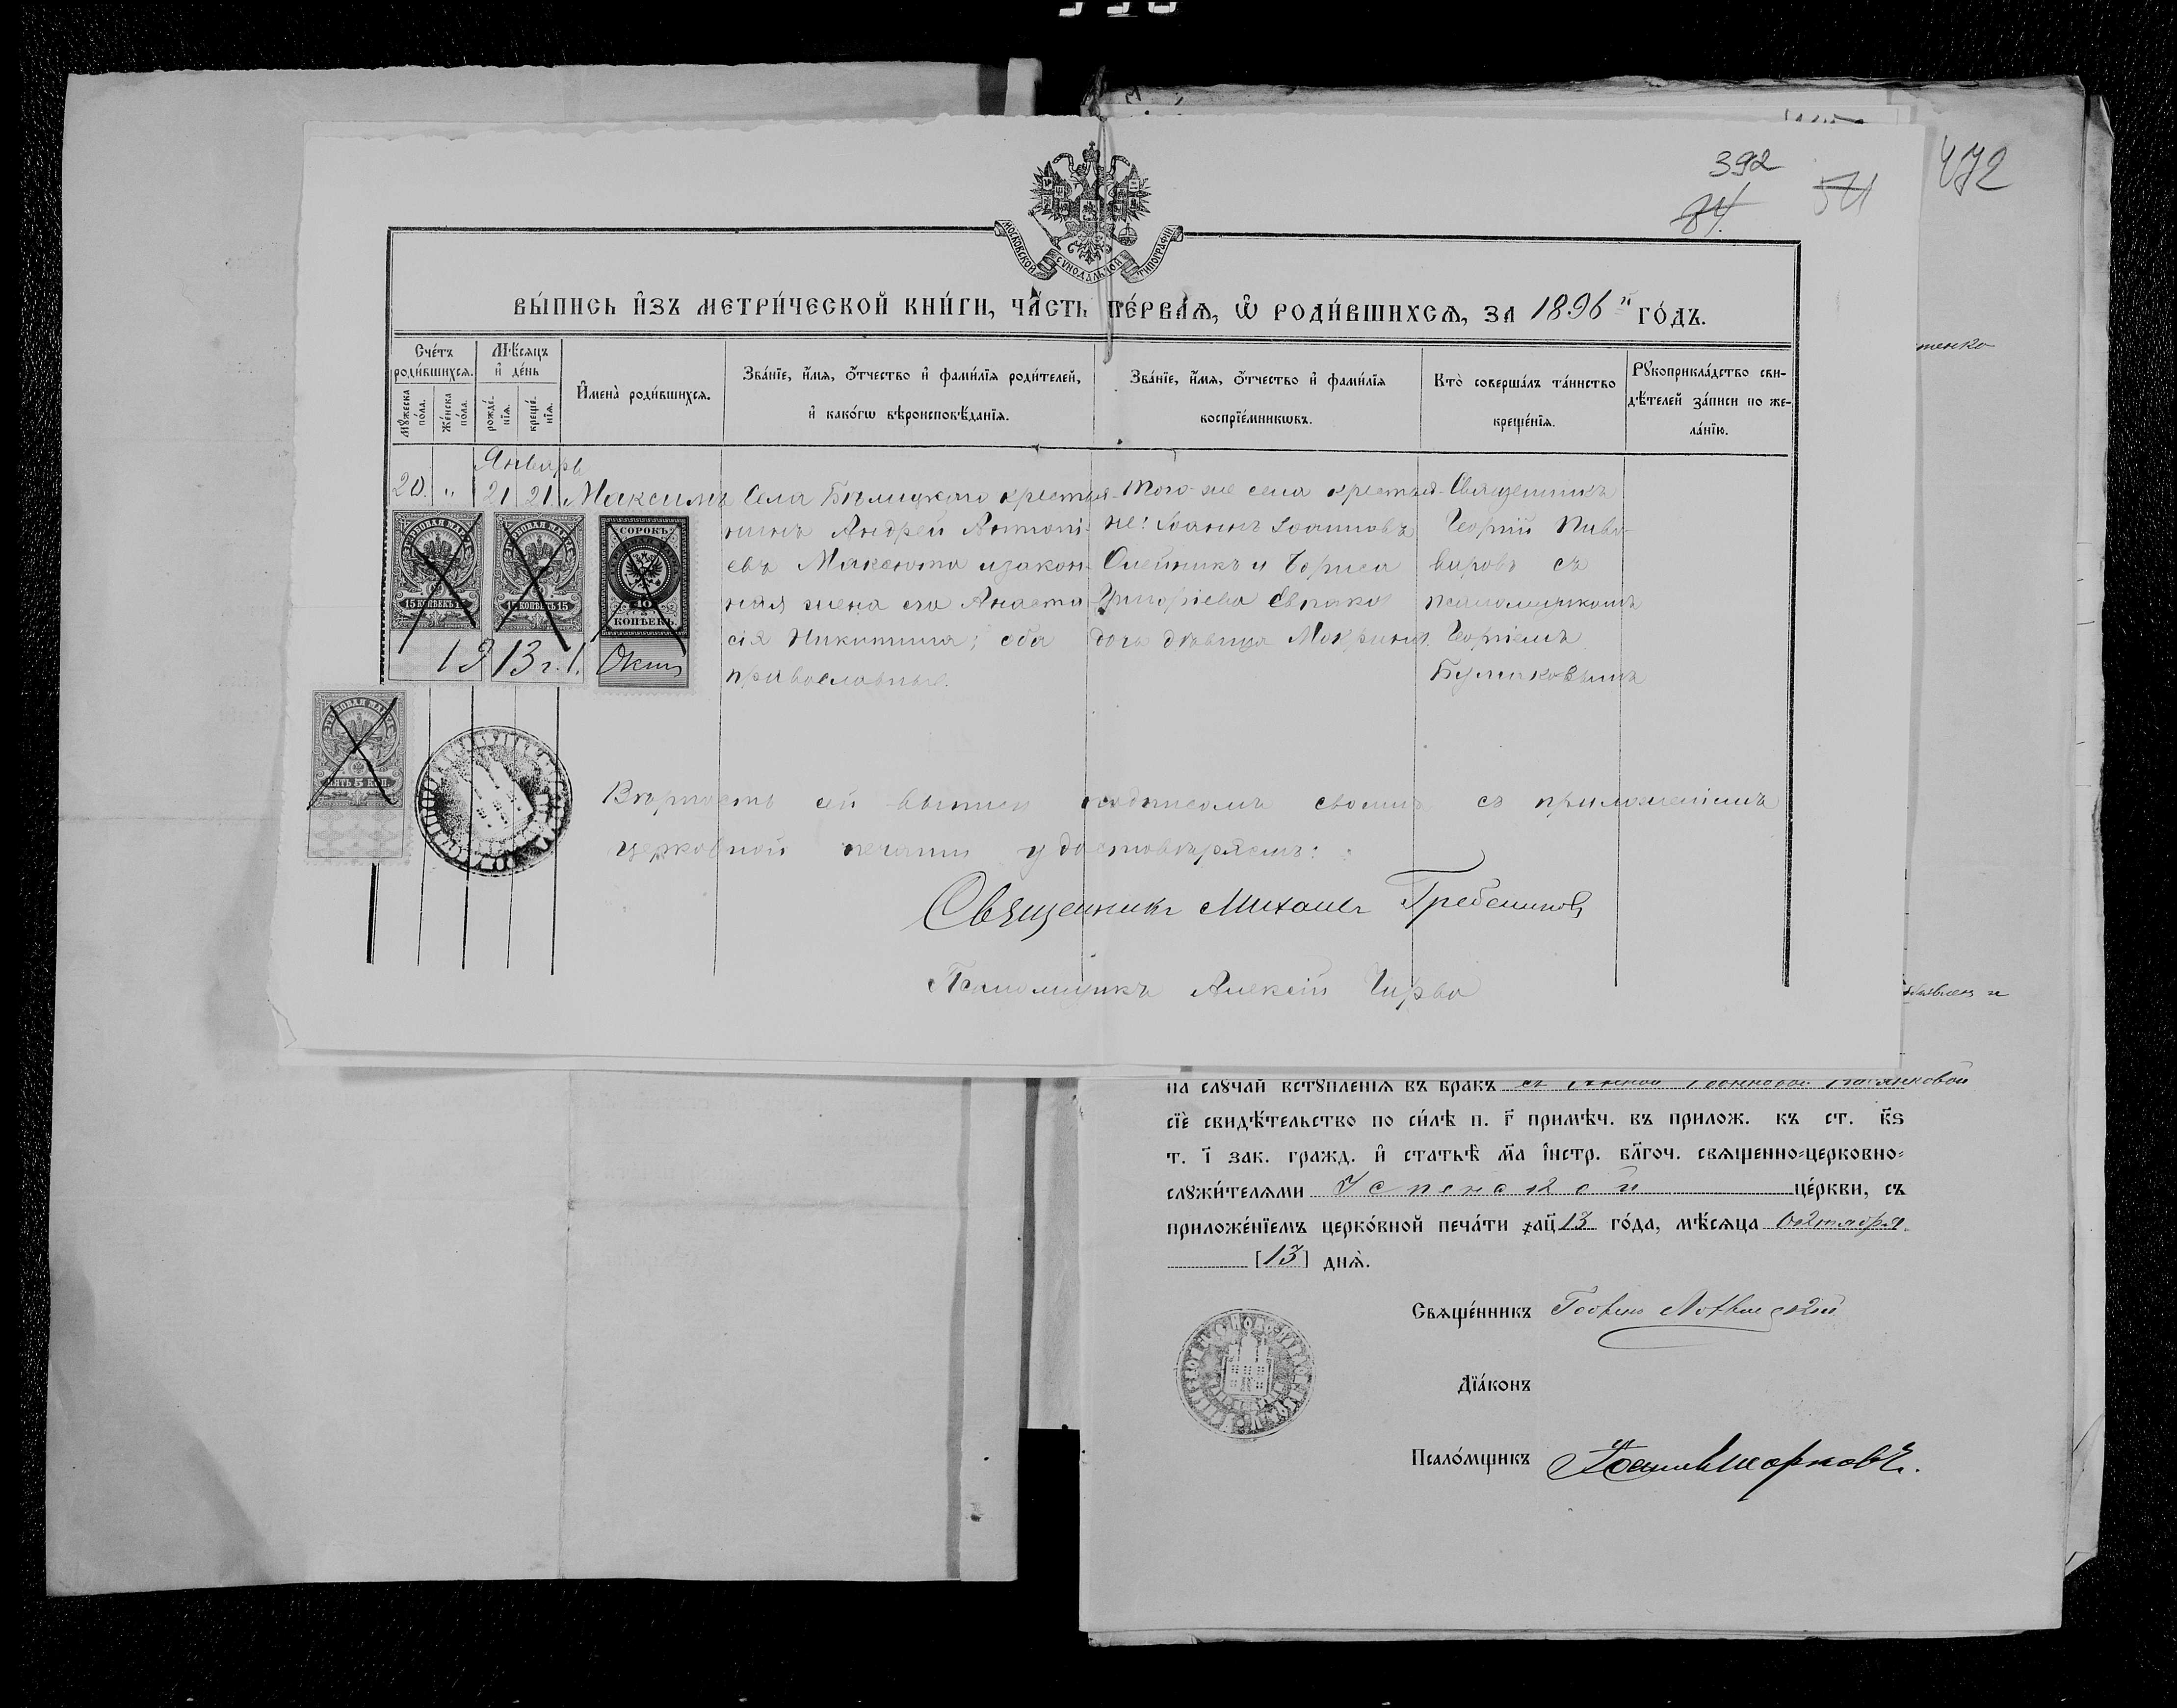 392
84.
541
472
МОСКОВСКОЙ СѴНОДАЛЬНОЙ ТИПОГРАФІИ
ВЫ́ПИСЬ И҆ЗЪ МЕТРИ́ЧЕСКОЙ КНИ́ГИ, ЧА́СТЬ ПЕ́РВАѦ, Ѡ҆ РОДИ́ВШИХСѦ, ЗА 1896 й ГО́ДЪ.
Сче́тъ роди́вшихсѧ.
Мꙋ́жеска по́ла.
Же́нска по́ла.
Мѣ́сѧцъ и҆ де́нь
рожде́нїѧ.
креще́нїѧ.
И҆мена̀ роди́вшихсѧ.
Зва́нїе, и҆́мѧ, ѻ҆́тчество и҆ фами́лїѧ роди́телей,
и҆ како́гѡ вѣроисповѣ́данїѧ.
Зва́нїе, и҆́мѧ, ѻ҆́тчество и҆ фами́лїѧ
воспрїе́мникѡвъ.
Кто̀ соверша́лъ та́инство
креще́нїѧ.
Рꙋкоприкла́дство сви-
дѣ́телей за́писи по же-
ла́нїю.
Январь
20. " 21 21 Максимъ
Села Бѣлицкаго крестья-
нинъ Андрей Антоні-
евъ Максюта и закон-
ная жена его Анаста-
сія Никитина; оба
православные.
Того-же села крестья-
не: Іоаннъ Іоанновъ
Олейникъ и Бориса
Григоріева
дочь дѣвица Макрина.
Священникъ
Георгій Пиво-
варовъ съ
псаломщикомъ
Георгіемъ
ГЕРБОВАЯ МАРКА
15 КОПѢЕКЪ 15
ГЕРБОВАЯ МАРКА
15 КОПѢЕКЪ 15
СОРОКЪ
40
КОПѢЕКЪ.
1913 г. 1. Окт.
ГЕРБОВАЯ МАРКА
ПЯТЬ 5 КОП.
Вѣрность сей выписи подписомъ своимъ съ приложеніемъ
церковной печати удостовѣряемъ:
Священникъ Михаилъ Гребенниковъ
Псаломщикъ Алексій Чирва
на слꙋчай встꙋпленїѧ въ бракъ
сїѐ свидѣ́тельство по си́лѣ п. г҃ примѣч. въ прилож. къ ст. к҃ѕ
т. і҃ зак. гражд. и҆ статьѣ̀ м҃а і҆нстр. бл҃гоч. свѧщенно-церковно-
слꙋжи́телѧми Успенской це́ркви, съ
приложе́нїемъ церко́вной печа́ти ҂ац҃ 13 го́да, мѣ́сѧца Октября
[13] днѧ̀.
Свѧще́нникъ
Дїа́конъ
Псало́мщикъ